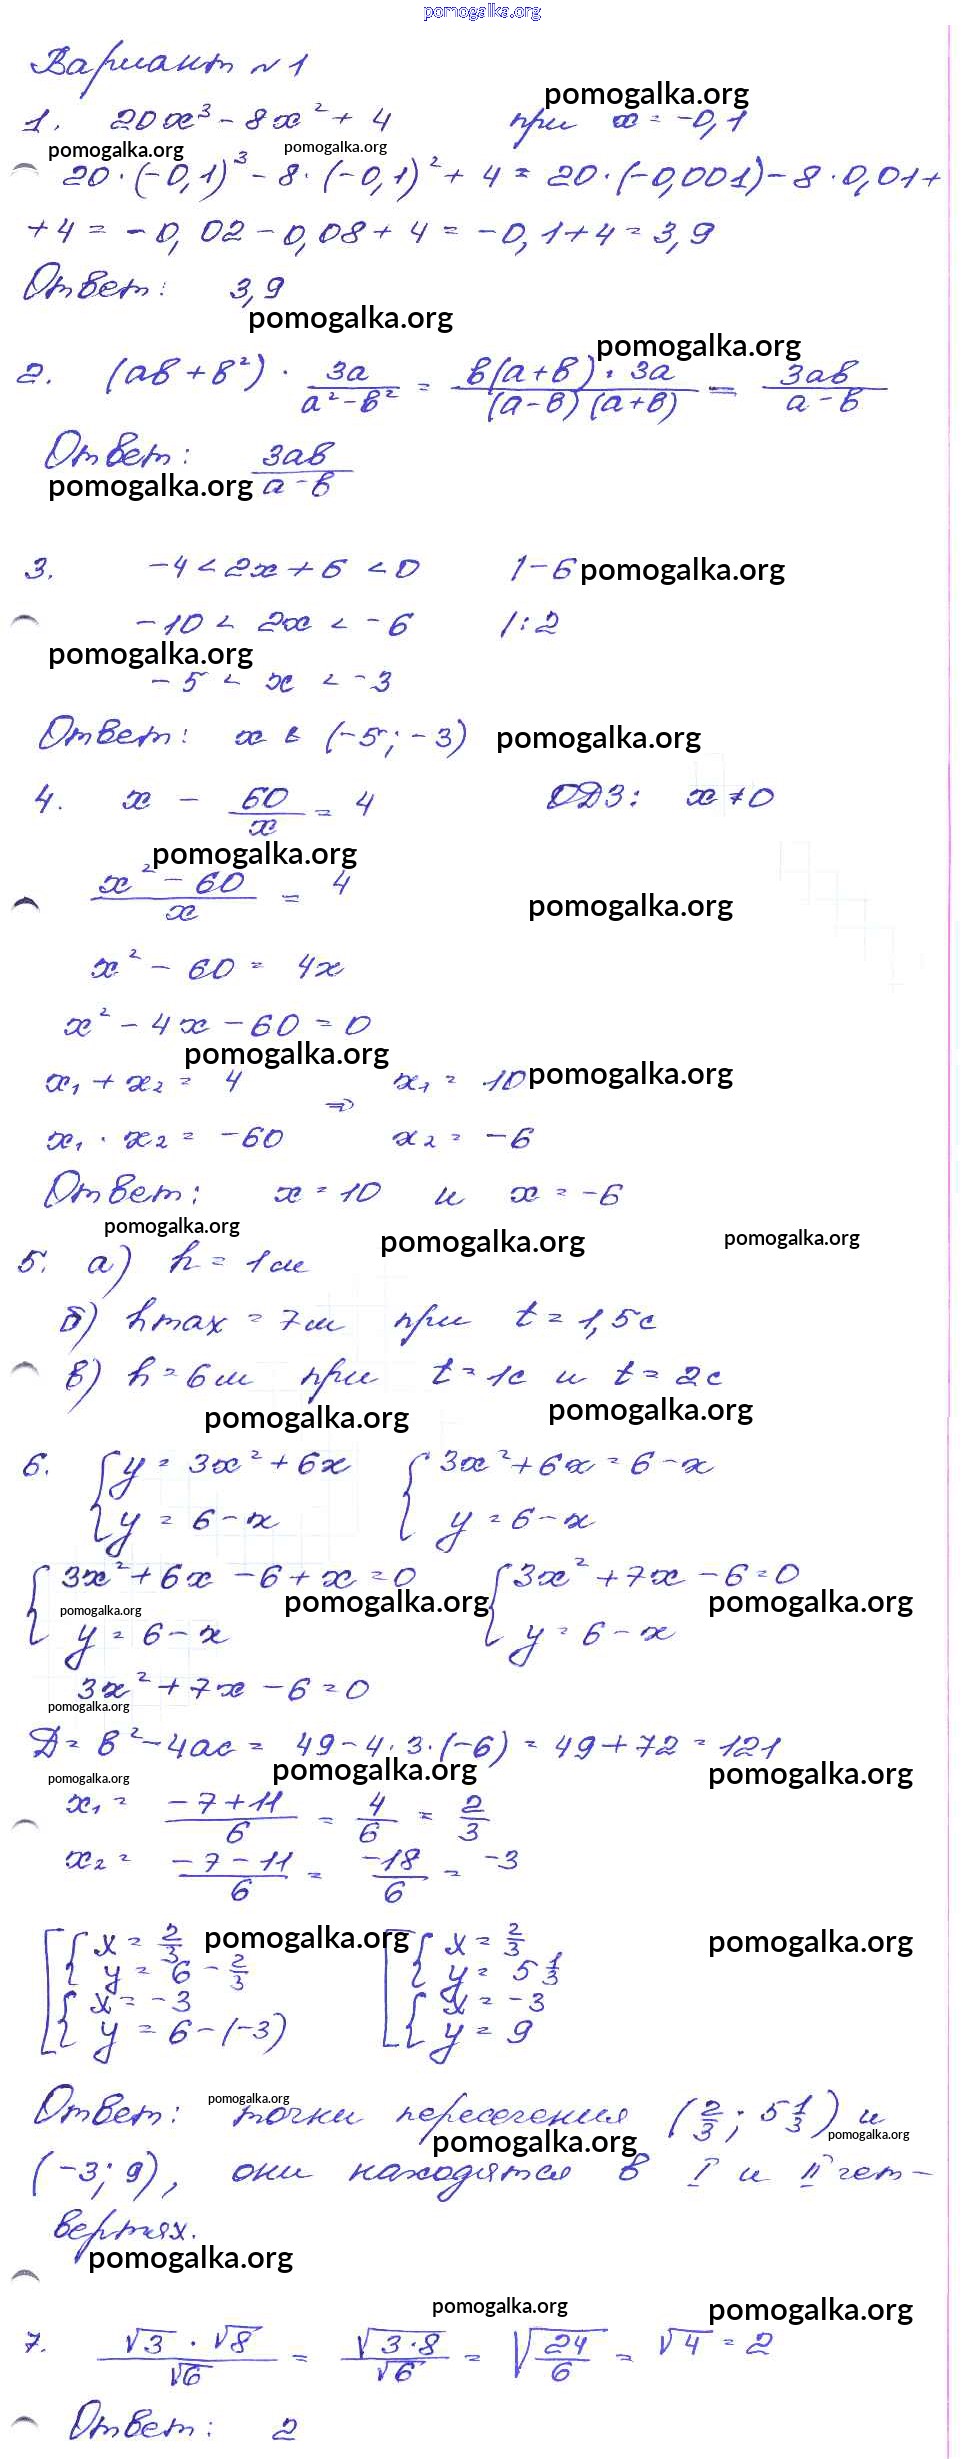 pomogalka.org
Вариант №1
pomogalka.org
1. 20x³ - 8x² + 4 при x = -0,1
pomogalka.org pomogalka.org
20·(-0,1)³ - 8·(-0,1)² + 4 = 20·(-0,001) - 8·0,01 +
+ 4 = -0,02 - 0,08 + 4 = -0,1 + 4 = 3,9
Ответ: 3,9
pomogalka.org
pomogalka.org
2. (ab + b²) · 3a/(a² - b²) = b(a+b)·3a/((a-b)(a+b)) = 3ab/(a-b)
Ответ: 3ab/(a-b)
pomogalka.org
3. -4 < 2x + 6 < 0 |-6
pomogalka.org
-10 < 2x < -6 |:2
pomogalka.org
-5 < x < -3
Ответ: x ∈ (-5; -3)
pomogalka.org
4. x - 60/x = 4 ОДЗ: x ≠ 0
pomogalka.org
(x² - 60)/x = 4
pomogalka.org
x² - 60 = 4x
x² - 4x - 60 = 0
pomogalka.org
x₁ + x₂ = 4 x₁ = 10
pomogalka.org
⇒
x₁ · x₂ = -60 x₂ = -6
Ответ: x = 10 и x = -6
pomogalka.org pomogalka.org pomogalka.org
5. а) h = 1м
б) hmax = 7м при t = 1,5с
в) h = 6м при t = 1с и t = 2с
pomogalka.org pomogalka.org
6. { y = 3x² + 6x { 3x² + 6x = 6 - x
y = 6 - x y = 6 - x
{ 3x² + 6x - 6 + x = 0 { 3x² + 7x - 6 = 0
pomogalka.org pomogalka.org pomogalka.org
y = 6 - x y = 6 - x
3x² + 7x - 6 = 0
pomogalka.org
Д = b² - 4ac = 49 - 4·3·(-6) = 49 + 72 = 121
pomogalka.org pomogalka.org pomogalka.org
x₁ = (-7+11)/6 = 4/6 = 2/3
x₂ = (-7-11)/6 = -18/6 = -3
pomogalka.org pomogalka.org
[ { x = 2/3 [ { x = 2/3
y = 6 - 2/3 y = 5 1/3
{ x = -3 { x = -3
y = 6 - (-3) y = 9
pomogalka.org
Ответ: точки пересечения (2/3; 5 1/3) и
pomogalka.org pomogalka.org
(-3; 9), они находятся в I и II чет-
вертях.
pomogalka.org
pomogalka.org pomogalka.org
7. √3 · √8/√6 = √(3·8)/√6 = √(24/6) = √4 = 2
Ответ: 2